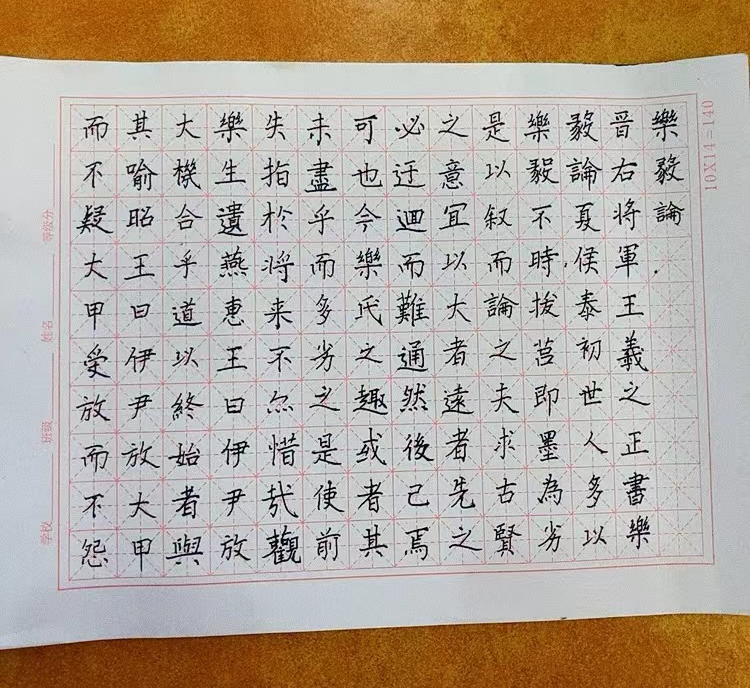 10X14=140
樂毅論
晋右将軍王羲之正書樂
毅論夏侯泰初世人多以
樂毅不時拔莒即墨為劣
是以叙而論之夫求古賢
之意宜以大者遠者先之
必迂迴而難通然後已焉
可也今樂氏之趣或者其
未盡乎而多劣之是使前
失指於将来不亦惜哉觀
樂生遺燕惠王曰伊尹放
大機合乎道以終始者與
其喻昭王曰伊尹放大甲
而不疑大甲受放而不怨
学校 班级 姓名 等级分